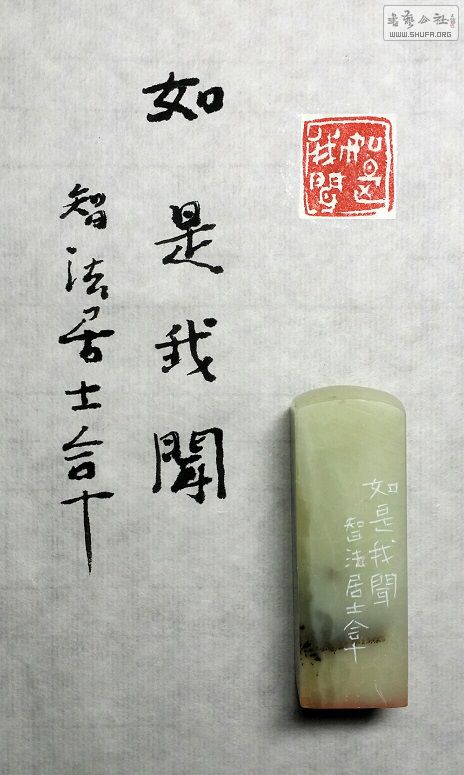 如是我聞
智法居士合十
如是我聞
如是我聞
智法居士合十
書藝公社
WWW.SHUFA.ORG